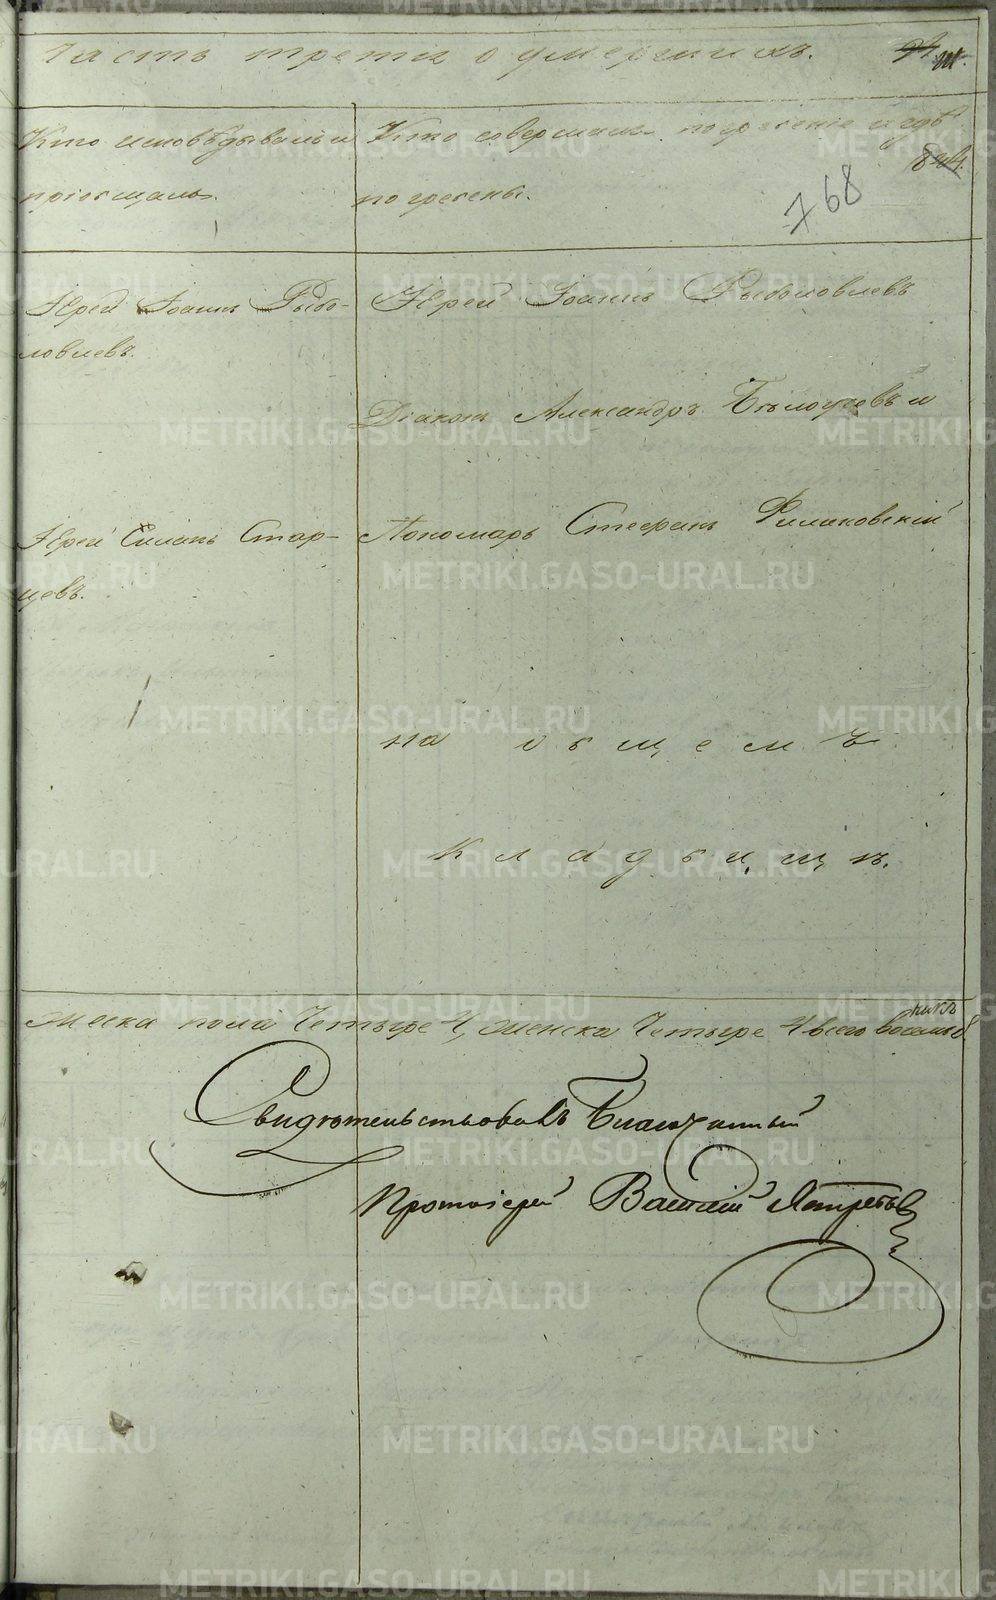 Часть третія о умершихъ.
Кто исповѣдывалъ и
пріобщалъ.
Кто совершалъ погребеніе и гдѣ
погребены.
768
Іерей Іоаннъ Рыбо-
ловлевъ.
Іерей Іоаннъ Рыболовлевъ
Діаконъ Александръ Бѣлоусовъ и
Іерей Силанъ Стар-
цевъ.
Пономарь Стефанъ
на общемъ
кладбищѣ.
Муска пола Четыре 4, Женска Четыре 4 всего
Свидѣтельствовалъ Благочинный
Протоіерей Василій Ястребовъ
METRIKI.GASO-URAL.RU